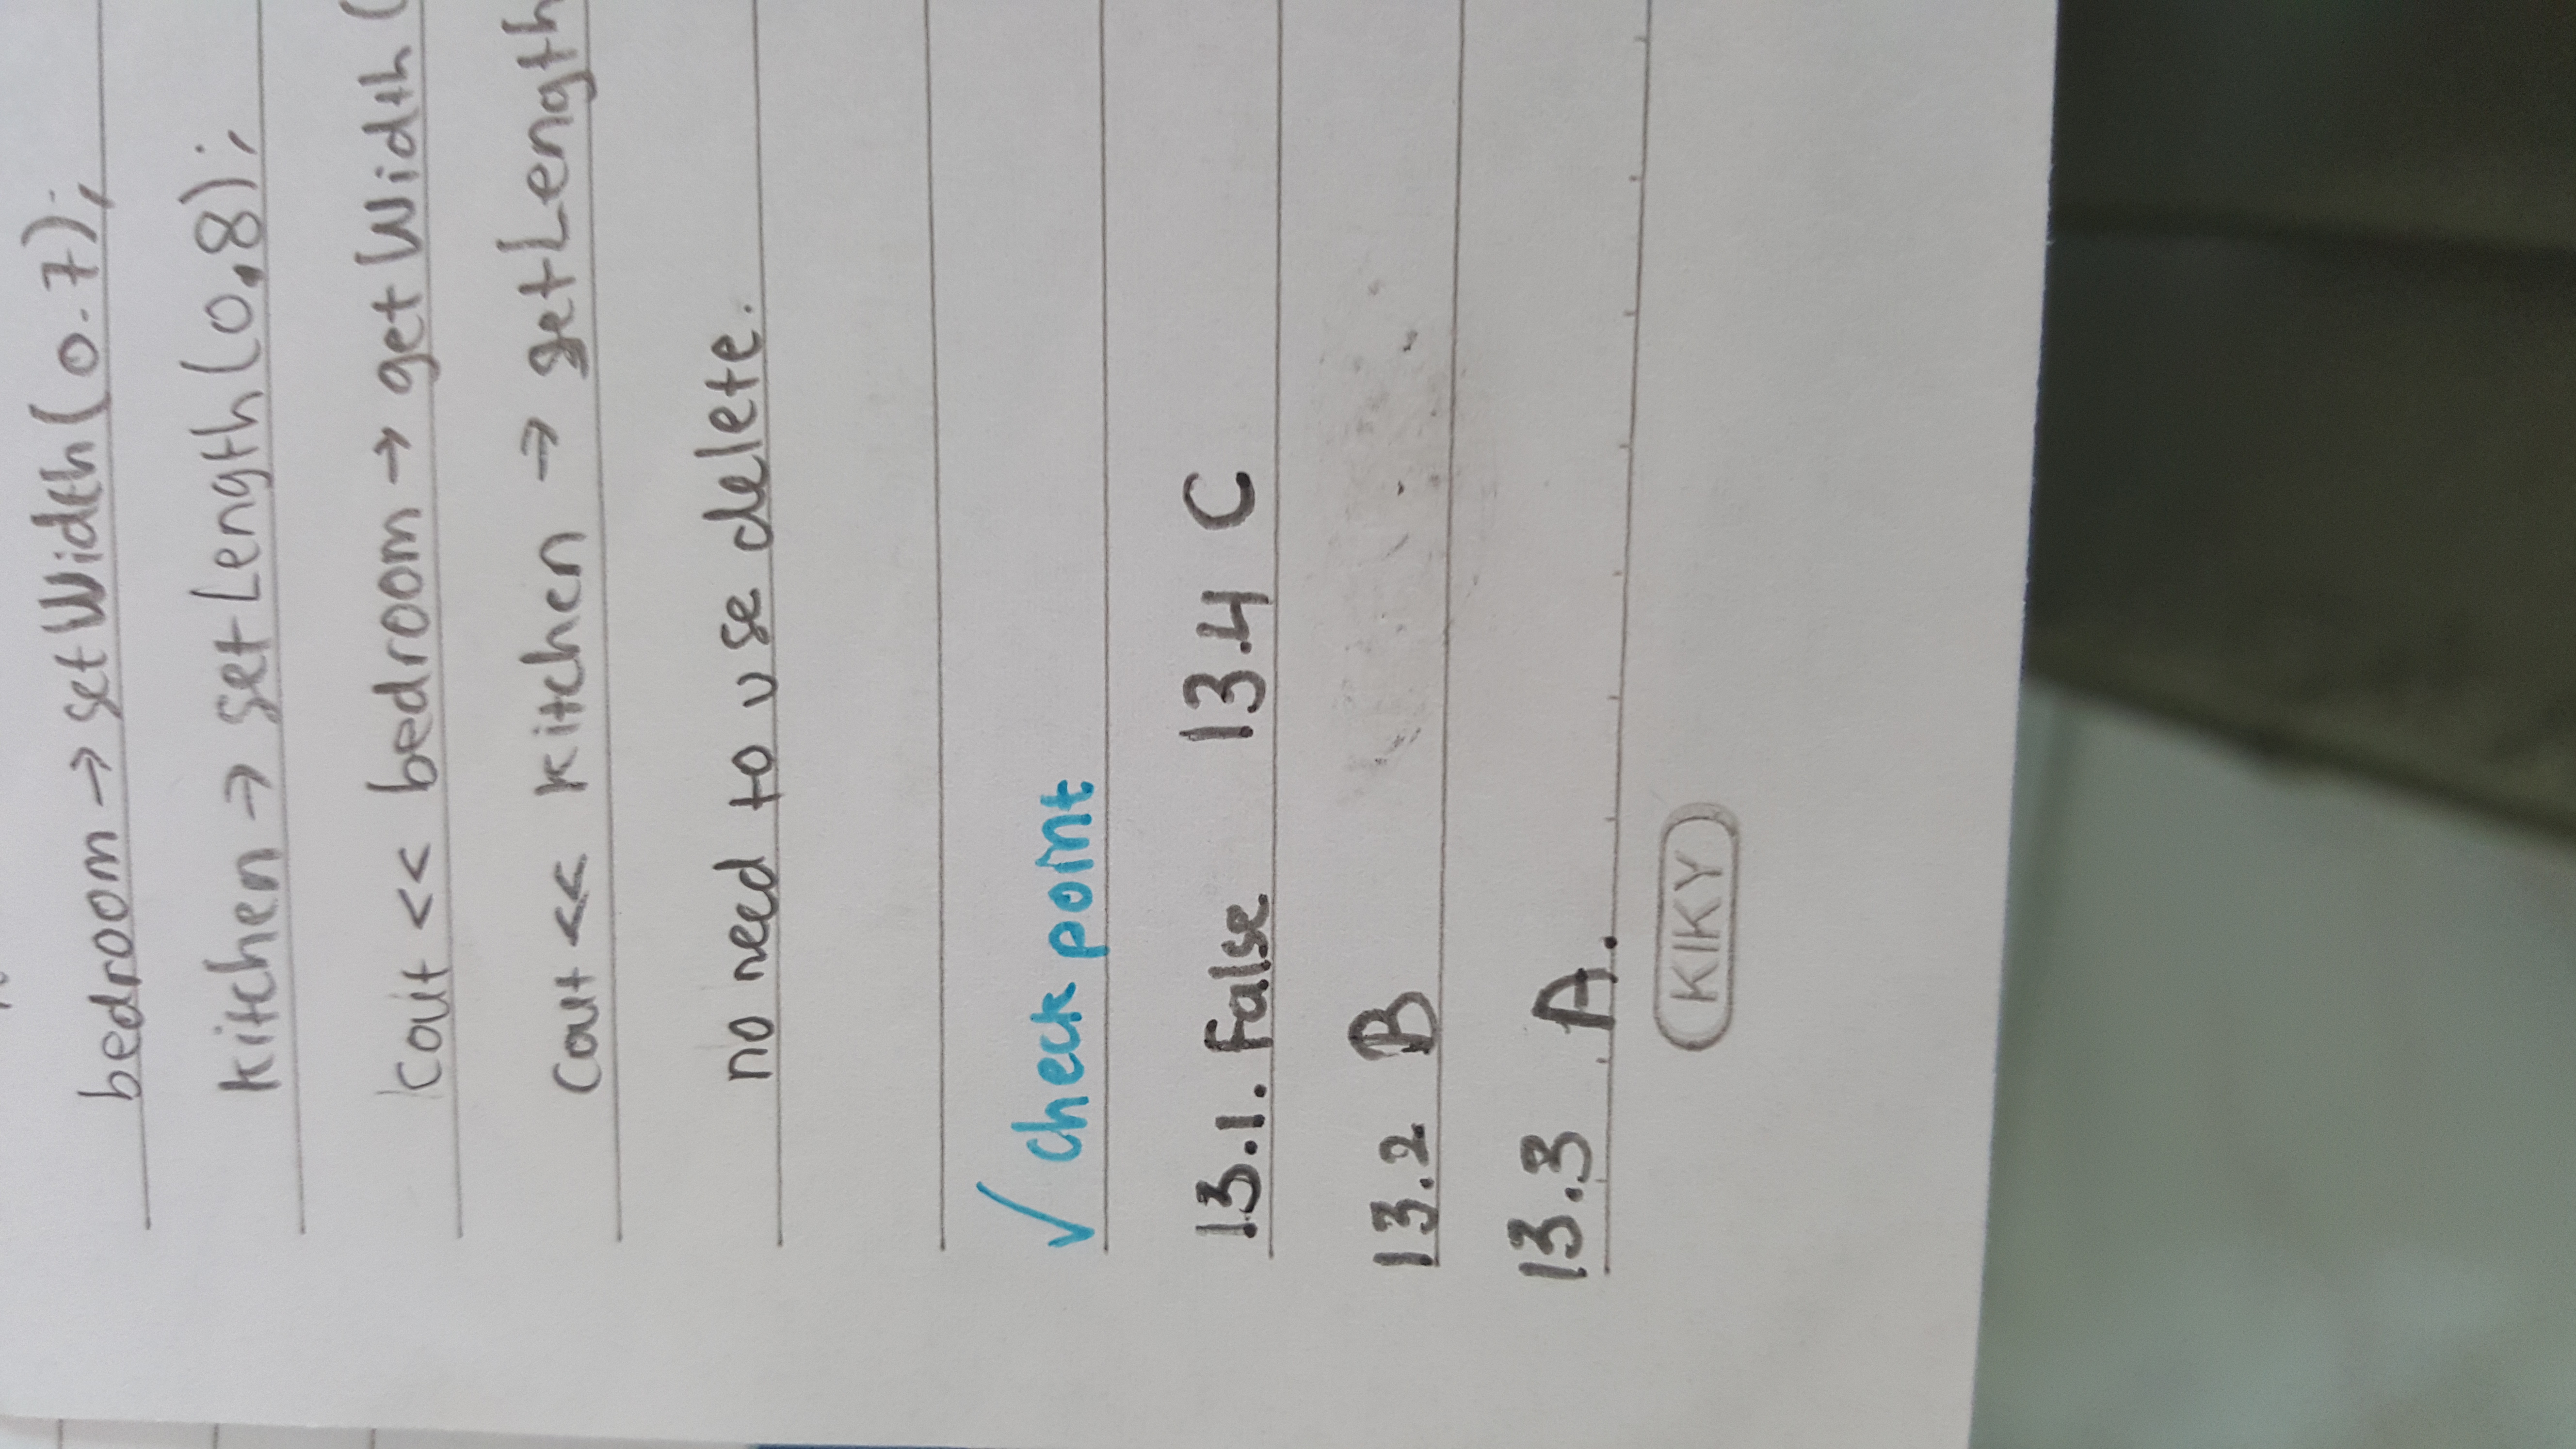 bedroom → setWidth(0.7);
kitchen → setLength(0.8);
cout << bedroom → getWidth(
cout << kitchen → getLength
no need to use delete.
√ check point
13.1. False 13.4 C
13.2 B
13.3 A.
KIKY